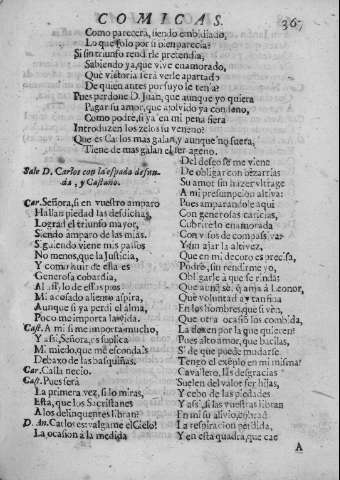 COMICAS.
36
Como parecerà, siendo embidiado,
Lo que solo por si bien parecia?
Si sin triunfo rendirle pretendia,
Sabiendo ya, que vive enamorado,
Que victoria serà verle apartado
De quien antes por suyo le tenia?
Pues perdone D. Juan, que aunque yo quiera
Pagar su amor, que a olvido ya condeno,
Como podrè, si ya en mi pena fiera
Introduzen los zelos su veneno?
Que es Carlos mas galan, y aunque no fuera,
Tiene de mas galan el ser ageno.
Sale D. Carlos con la espada desnuda, y Castaño.
Car. Señora, si en vuestro amparo
Hallan piedad las desdichas,
Lograd el triunfo mayor,
Siendo amparo de las mias.
Siguiendo viene mis passos
No menos, que la Justicia,
Y como huir de ella es
Generosa cobardia,
Al assylo de essos pies
Mi acosado aliento aspira,
Aunque si ya perdi el alma,
Poco me importa la vida.
Cast. A mi si me importa mucho,
Y assi, Señora, os suplica
Mi miedo, que me escondais
Debaxo de las basquiñas.
Car. Calla necio.
Cast. Pues serà
La primera vez, si lo miras,
Esta, que los Sacristanes
A los delinquentes libran?
D. An. Carlos es: valgame el Cielo!
La ocasion à la medida
Del deseo se me viene
De obligar con bizarrias
Su amor sin hazer ultrage
A mi presumpcion altiva:
Pues amparandole aqui
Con generosas caricias,
Cubrirè lo enamorada
Con visos de compassiva:
Y sin ajar la altivez,
Que en mi decoro es precisa,
Podrè, sin rendirme yo,
Obligarle a que se rinda:
Que aunq̃ sè, q̃ ama à Leonor,
Que voluntad ay tan fina
En los hombres, que si vèn,
Que otra ocasion los combida,
La dexen por la que quieren?
Pues alto amor, que bacilas,
Si de que puede mudarse
Tengo el exemplo en mi misma?
Cavallero, las desgracias
Suelen del valor ser hijas,
Y cebo de las piedades
Y assi, si las vuestras libran
En mi su alivio, cobrad
La respiracion perdida,
Y en esta quadra, que cae
A